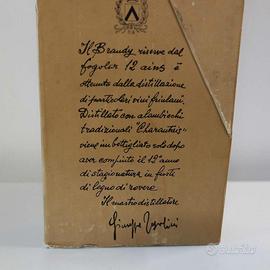 Il Brandy riserva del
fogolar 12 anni è
ottenuto dalla distillazione
di particolari vini friulani.
Distillato con alambicchi
tradizionali "Charantais"
viene imbottigliato solo dopo
aver compiuto il 12° anno
di stagionatura in fusti
di legno di rovere.
Il mastro distillatore
Giuseppe
subito.it